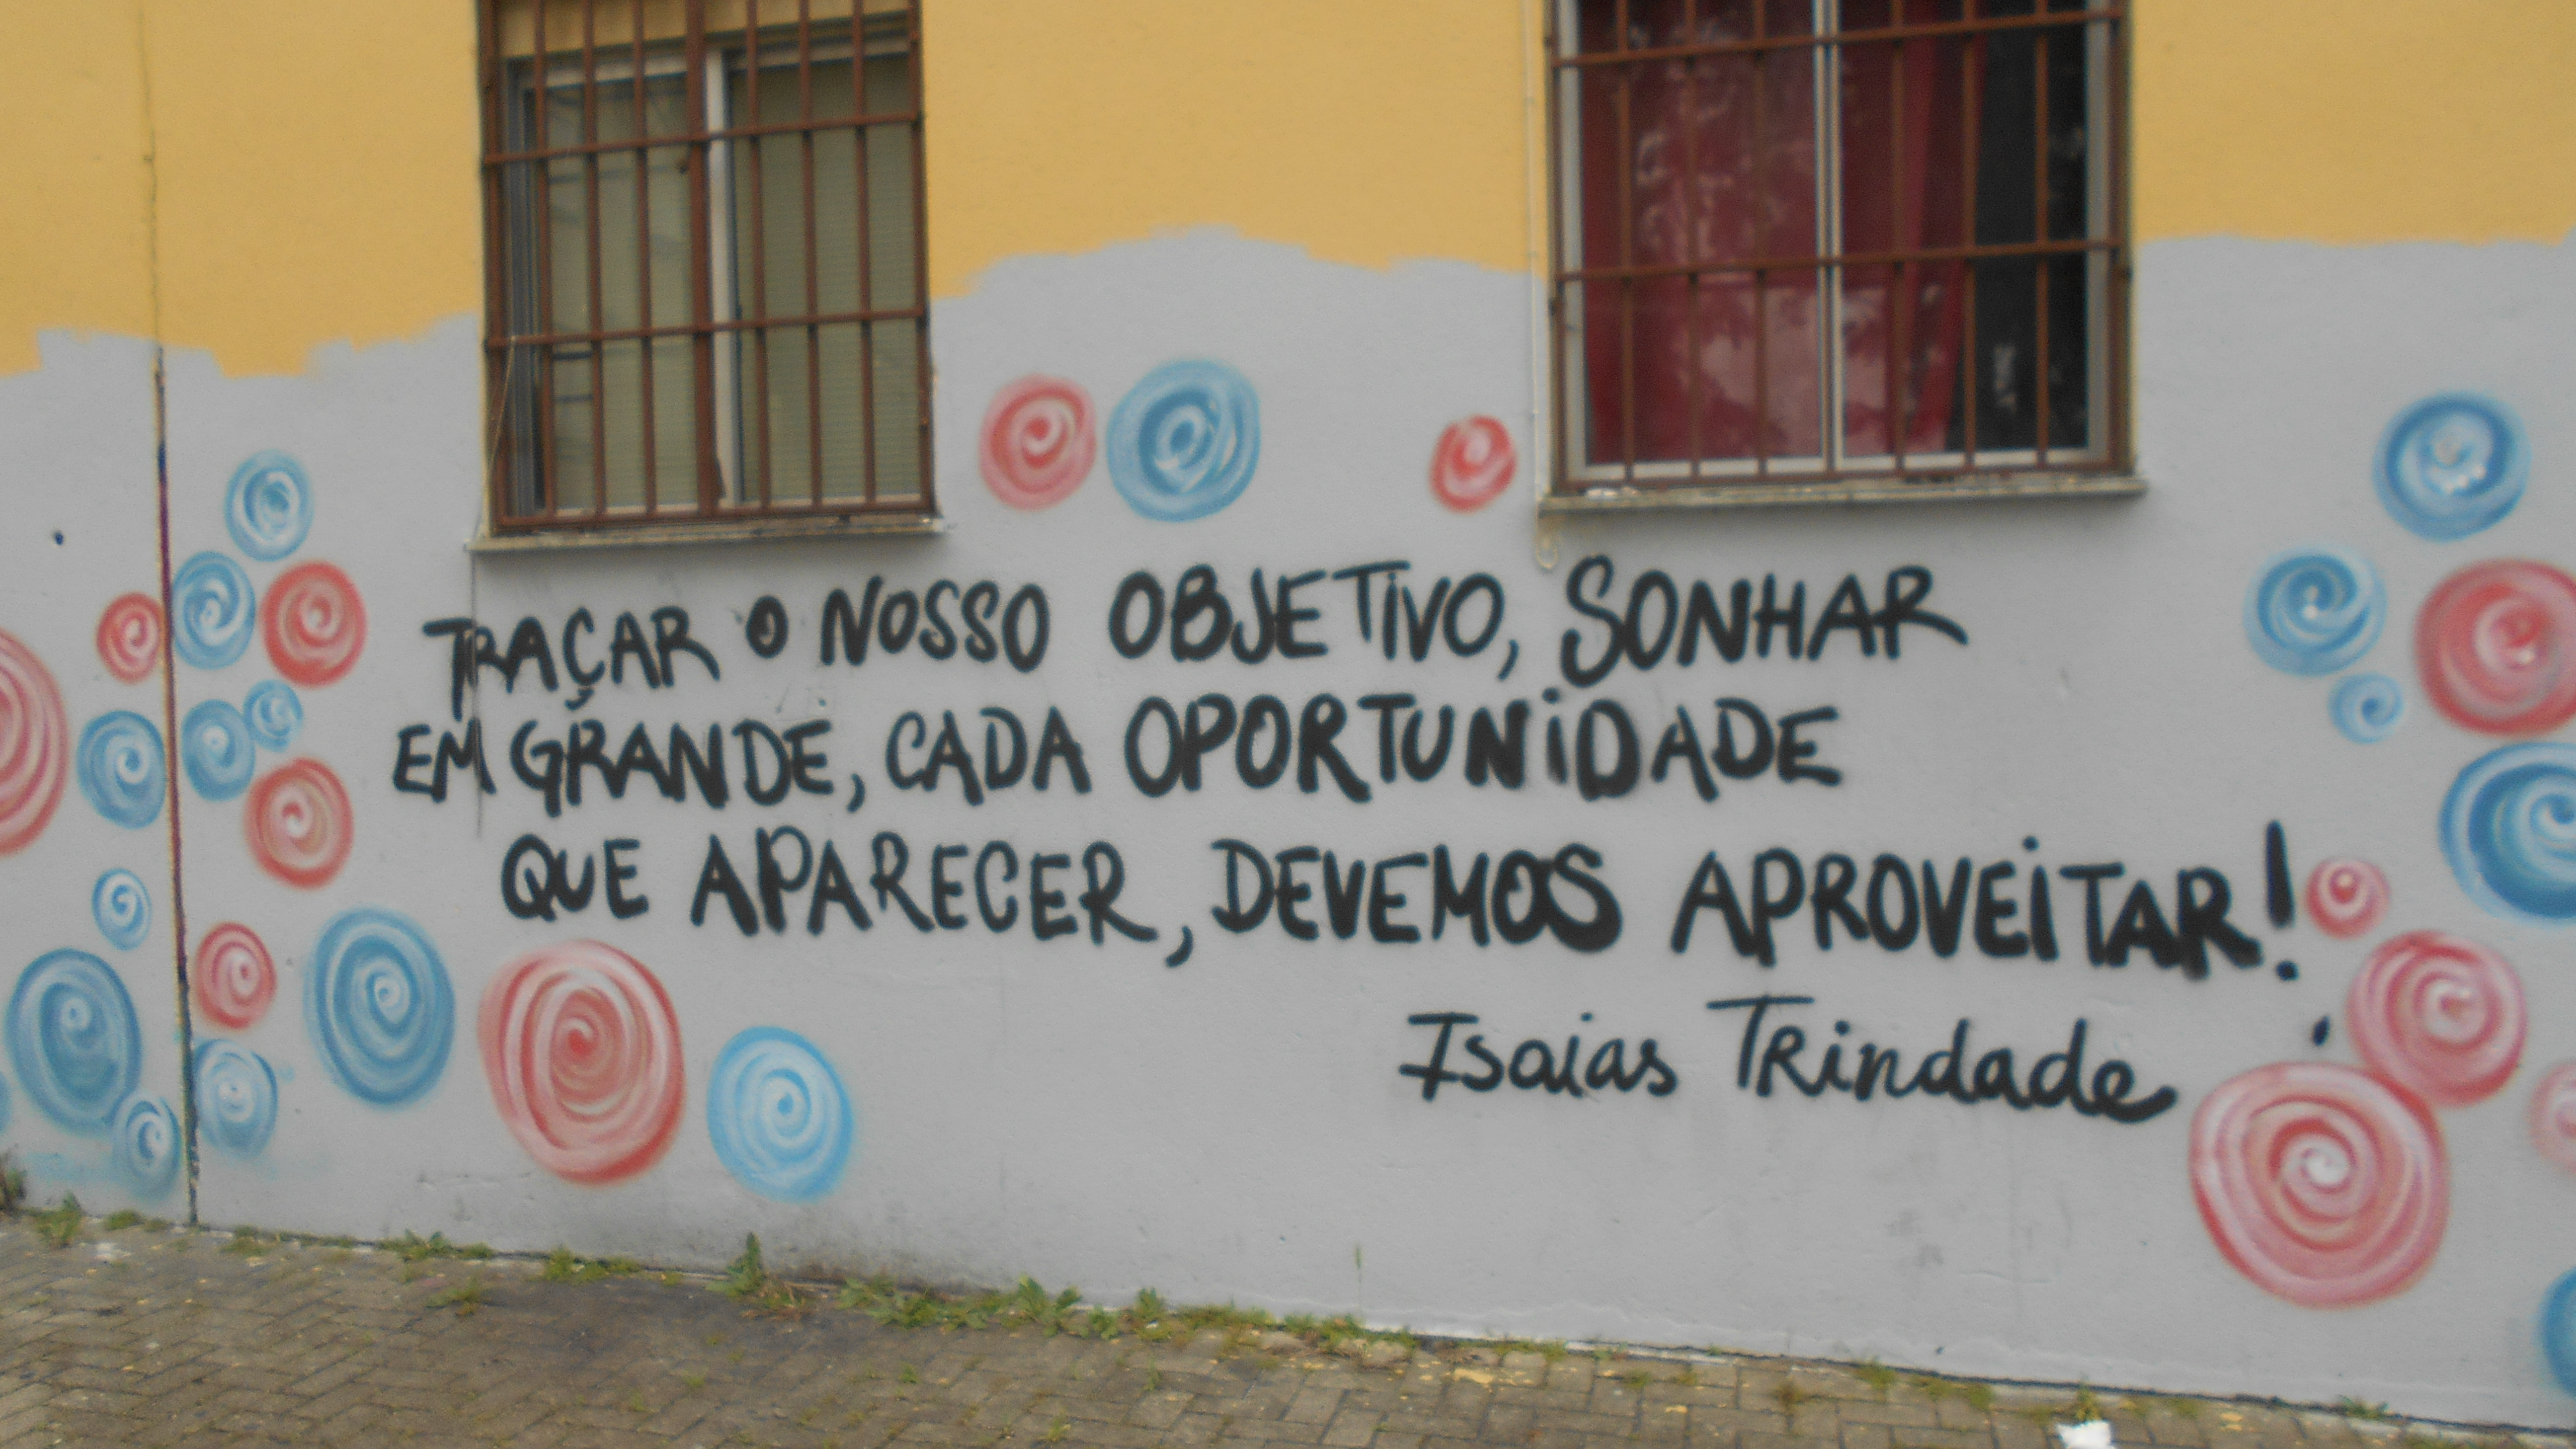 TRAÇAR O NOSSO OBJETIVO, SONHAR
EM GRANDE, CADA OPORTUNIDADE
QUE APARECER, DEVEMOS APROVEITAR!
Isaias Trindade